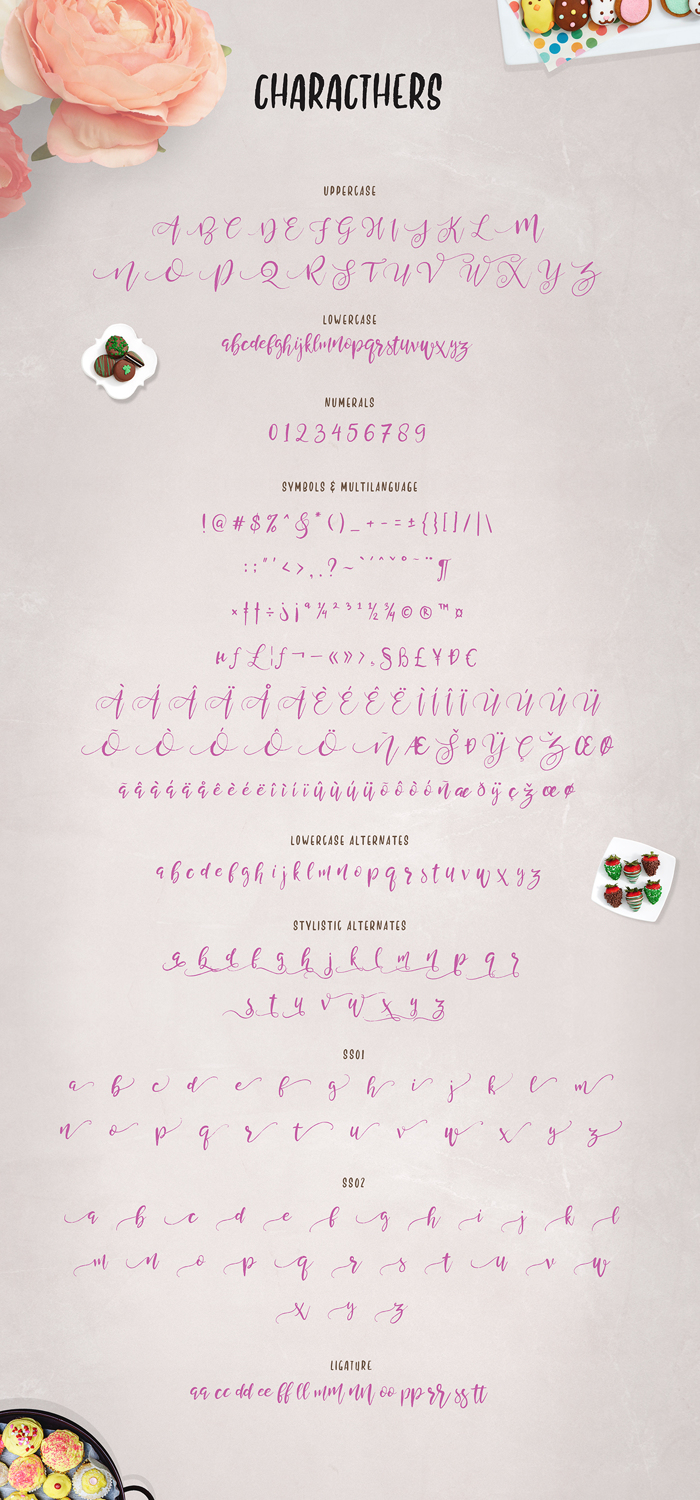 CHARACTHERS
UPPERCASE
A B C D E F G H I J K L M
N O P Q R S T U V W X Y Z
LOWERCASE
abcdefghijklmnopqrstuvwxyz
NUMERALS
0 1 2 3 4 5 6 7 8 9
SYMBOLS & MULTILANGUAGE
! @ # $ % ^ & * ( ) _ + - = ± { } [ ] / | \
: ; " ' < > , . ? ~ ` ´ ^ ˇ ° ¯ ¨ ¶
× † ‡ ÷ j ¡ ª ¼ ² ³ ¹ ½ ¾ © ® ™ ¤
µ ƒ £ ¦ ƒ ¬ — « » › , § ß £ ¥ Ð €
À Á Â Ä Å Ã È É Ê Ë Ì Í Î Ï Ù Ú Û Ü
Õ Ò Ó Ô Ö Ñ Æ Š Ð Ÿ Ç Ž Œ Ø
ã â à á ä å ê è é ë î ì í ï û ù ú ü õ ô ö ò ó ñ æ ð ÿ ç ž œ ø
LOWERCASE ALTERNATES
a b c d e f g h i j k l m n o p q r s t u v w x y z
STYLISTIC ALTERNATES
a b d f g h j k l m n p q r
s t u v w x y z
SS01
a b c d e f g h i j k l m
n o p q r t u v w x y z
SS02
a b c d e f g h i j k l
m n o p q r s t u v w
x y z
LIGATURE
aa cc dd ee ff ll mm nn oo pp rr ss tt